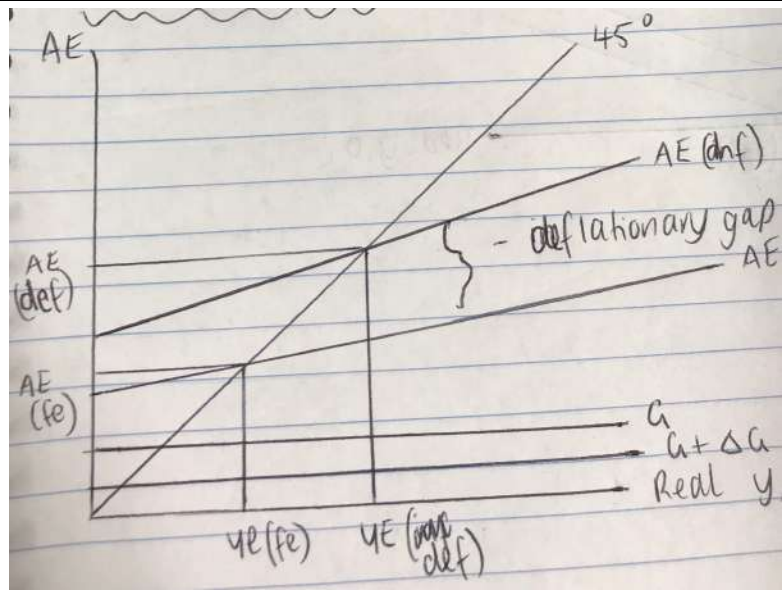 AE
45°
AE (dnf)
- deflationary gap
AE
AE
(def)
AE
(fe)
G
G + ΔG
Real y
ye (fe)
YE (
def)